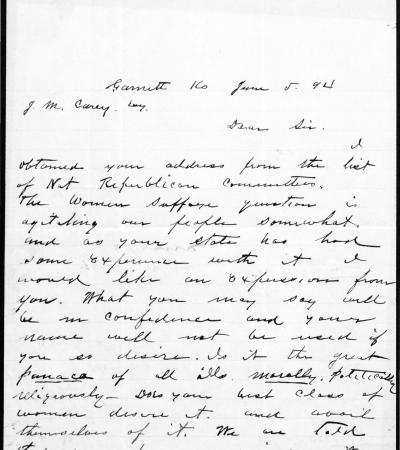 Garnett Ks June 5. 94
J. M. Carey. Wy.
Dear Sir.
I
obtained your address from the list
of Nat Republican Committees.
The Women Suffage question is
agitating our people somewhat.
and as your state has had
some experience with it I
would like an expression from
you. What you may say will
be in confidence and your
name will not be used if
you so desire. Is it the great
panace of all ills. morally, politically
religiously - Does your best class of
women desire it. and avail
themselves of it. We are told